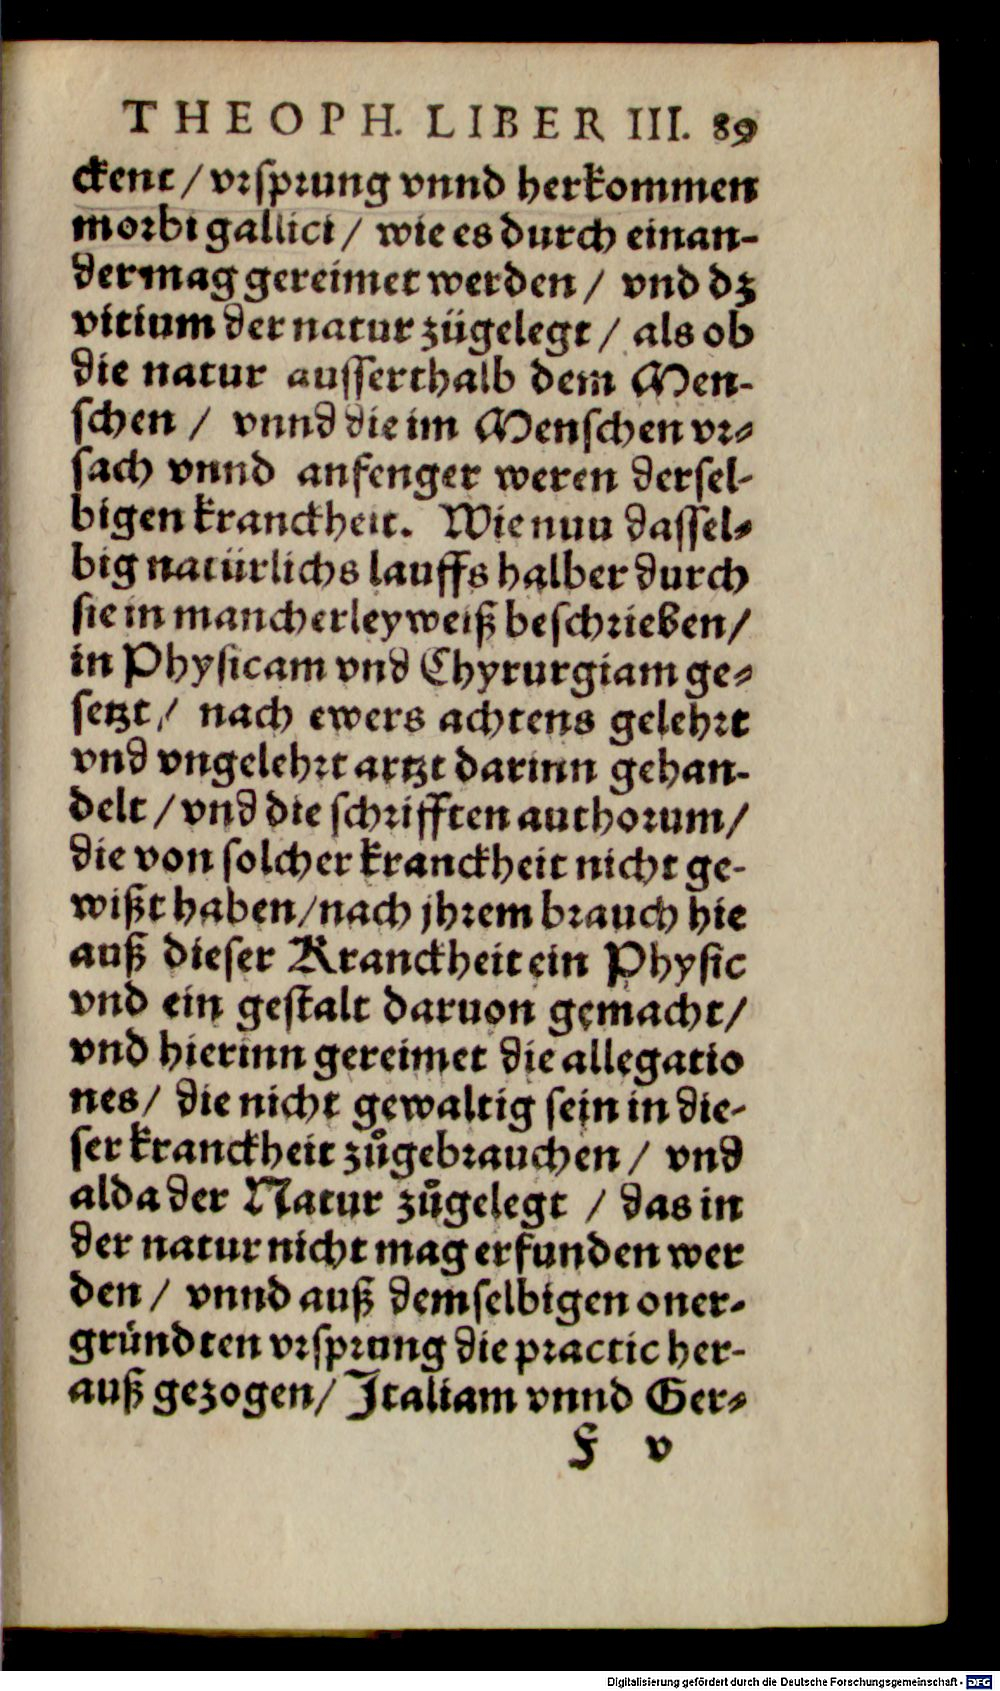 THEOPH. LIBER III. 89
ckent / vrsprung vnnd herkommen
morbi gallici / wie es durch einan-
der mag gereimet werden / vnd dz
vitium der natur zügelegt / als ob
die natur ausserthalb dem Men-
schen / vnnd die im Menschen vr-
sach vnnd anfenger weren dersel-
bigen kranckheit. Wie nuu dassel-
big natürlichs lauffs halber durch
sie in mancherley weiß beschrieben /
in Physicam vnd Chyrurgiam ge-
setzt / nach ewers achtens gelehrt
vnd vngelehrt artzt darinn gehan-
delt / vnd die schrifften authorum /
die von solcher kranckheit nicht ge-
wißt haben / nach jhrem brauch hie
auß dieser Kranckheit ein Physic
vnd ein gestalt daruon gemacht /
vnd hierinn gereimet die allegatio
nes / die nicht gewaltig sein in die-
ser kranckheit zůgebrauchen / vnd
alda der Natur zůgelegt / das in
der natur nicht mag erfunden wer
den / vnnd auß demselbigen oner-
gründten vrsprung die practic her-
auß gezogen / Italiam vnnd Ger-
F v
Digitalisierung gefördert durch die Deutsche Forschungsgemeinschaft - DFG